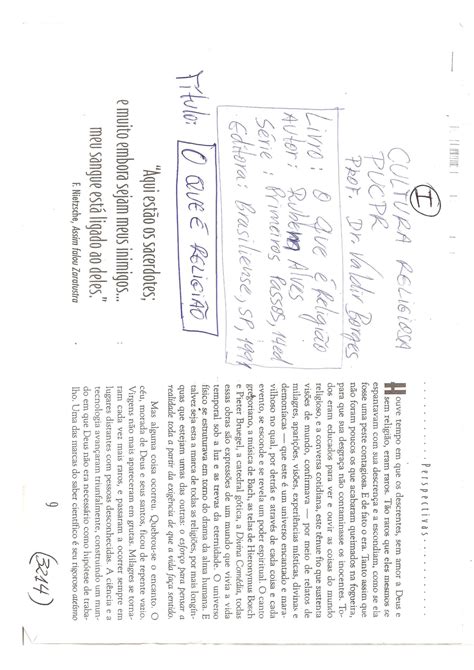 I
CULTURA RELIGIOSA
PUCPR
Prof. Dr. Valdir Borges
Livro: O que é Religião
Autor: Rubem Alves
Série: Primeiros Passos, 14ed
Editora: Brasiliense, SP, 1991
Título: O QUE É RELIGIÃO
"Aqui estão os sacerdotes;
e muito embora sejam meus inimigos...
meu sangue está ligado ao deles."
F. Nietzsche, Assim falou Zaratustra
Perspectivas
Houve tempo em que os descrentes, sem amor a Deus e
sem religião, eram raros. Tão raros que eles mesmos se
espantavam com sua descrença e a escondiam, como se ela
fosse uma peste contagiosa. E de fato o era. Tanto assim que
não foram poucos os que acabaram queimados na fogueira,
para que sua desgraça não contaminasse os inocentes. To-
dos eram educados para ver e ouvir as coisas do mundo
religioso, e a conversa cotidiana, este tênue fio que sustenta
visões de mundo, confirmava — por meio de relatos de
milagres, aparições, visões, experiências místicas, divinas e
demoníacas — que este é um universo encantado e mara-
vilhoso no qual, por detrás e através de cada coisa e cada
evento, se esconde e se revela um poder espiritual. O canto
gregoriano, a música de Bach, as telas de Hieronymus Bosch
e Pieter Bruegel, a catedral gótica, a Divina Comédia, todas
essas obras são expressões de um mundo que vivia a vida
temporal sob a luz e as trevas da eternidade. O universo
físico se estruturava em torno do drama da alma humana. E
talvez seja esta a marca de todas as religiões, por mais longín-
quas que estejam umas das outras: o esforço para pensar a
realidade toda a partir da exigência de que a vida faça sentido.
Mas alguma coisa ocorreu. Quebrou-se o encanto. O
céu, morada de Deus e seus santos, ficou de repente vazio.
Virgens não mais apareceram em grutas. Milagres se torna-
ram cada vez mais raros, e passaram a ocorrer sempre em
lugares distantes com pessoas desconhecidas. A ciência e a
tecnologia avançaram triunfalmente, construindo um mun-
do em que Deus não era necessário como hipótese de traba-
lho. Uma das marcas do saber científico é seu rigoroso ateísmo
9
(3214)